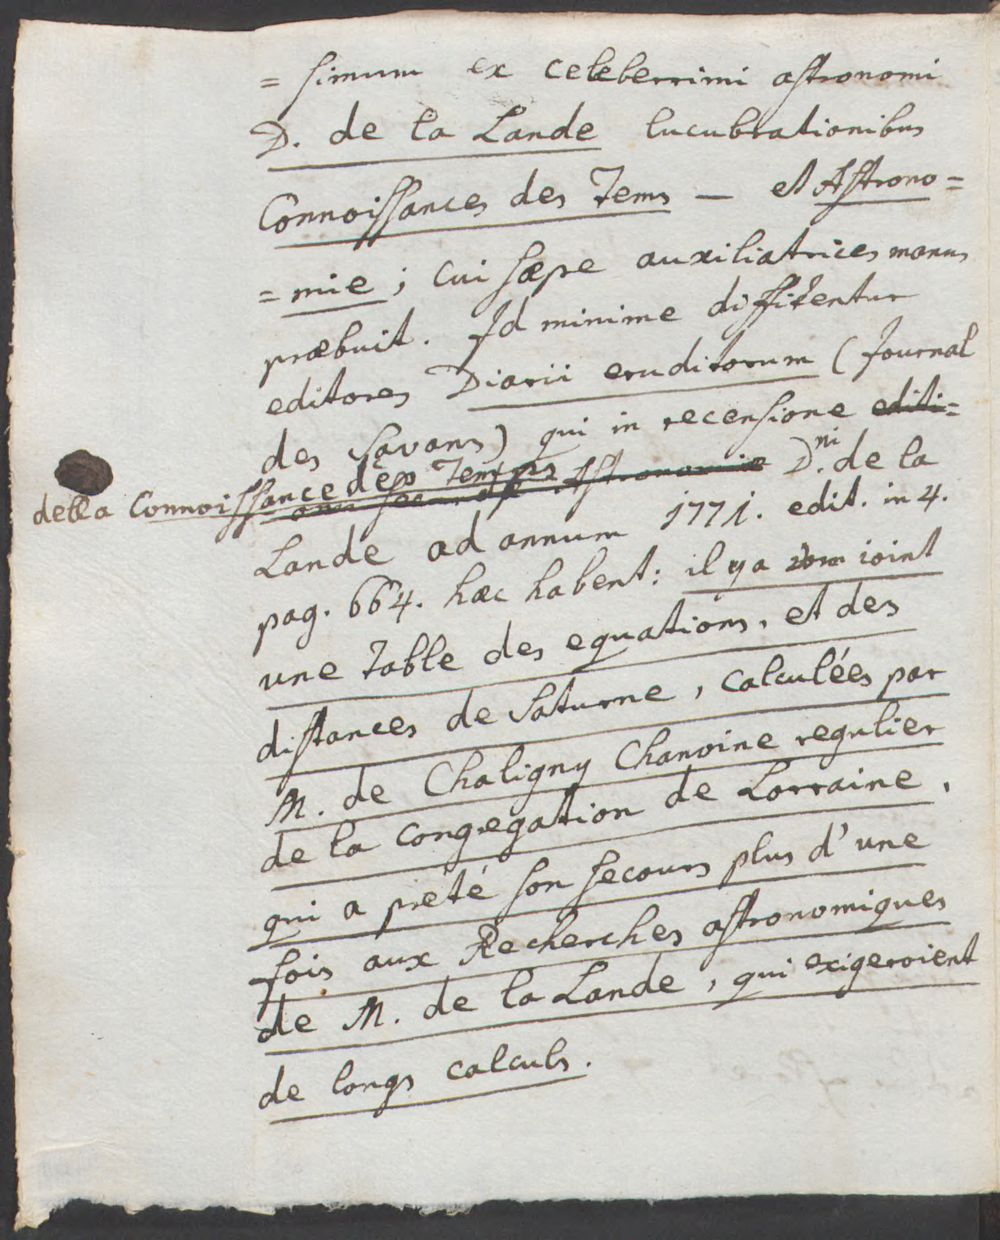 = simum ex celeberrimi astronomi
D. de la Lande lucubrationibus
Connoissances des Tems — et Astrono=
= mie ; cui sæpe auxiliatrices manus
præbuit. Id minime diffitentur
editores Diarii eruditorum (Journal
des Savans) qui in recensione editi=
della Connoissance des Tems Astronomie D.ni de la
Lande ad annum 1771. edit. in 4.
pag. 664. hæc habent: il y a joint
une Table des equations, et des
distances de Saturne, calculées par
M. de Chaligny Chanoine regulier
de la congregation de Lorraine,
qui a preté son secours plus d'une
fois aux Recherches astronomiques
de M. de la Lande, qui exigeroient
de longs calculs.